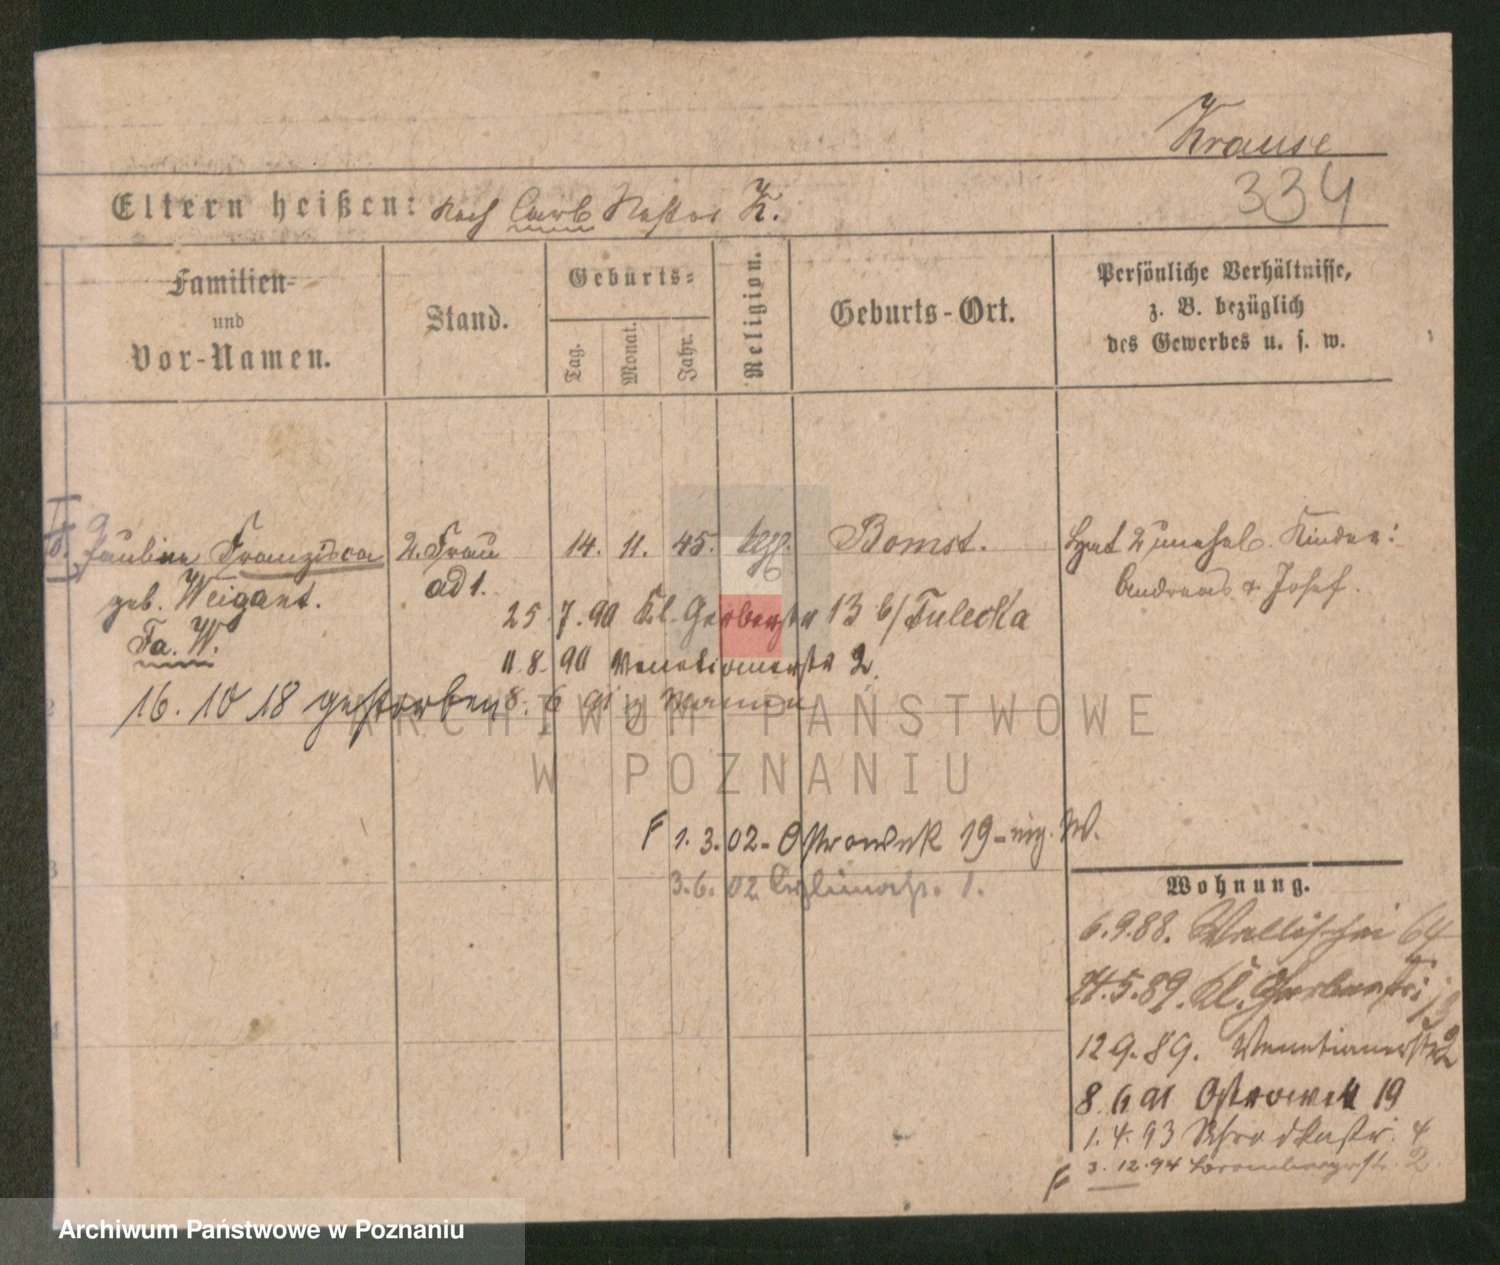 Krause
334
Eltern heißen: K.
Familien-
und
Vor-Namen.
Stand.
Geburts-
Tag.
Monat.
Jahr.
Religion.
Geburts-Ort.
Persönliche Verhältnisse,
z. B. bezüglich
des Gewerbes u. s. w.
II
Pauline Franzisca 2. Frau 14. 11. 45. Bomst. Hat 2 unehel. Kinder:
geb. Weigant. ad 1. Andreas u. Josef.
25. 7. 90 Kl. Gerberstr 13 b/ Tulecka
Fa. W.
11. 8. 90 Venetianerstr 2.
16. 10 18 gestorben 8. 6 91 z. Manne
F 1. 3. 02 - Ostrowek 19 - W.
3. 6. 02 1.
Wohnung.
6. 9. 88. Wallischei 64
5. 89. Kl. Gerberstr
12 9. 89. Venetianerstr 2
8. 6 91 Ostrowek 19
1. 4. 93 Schrodkastr. 4
F 3. 12. 94 Brombergerstr. 2
ARCHIWUM PAŃSTWOWE
W POZNANIU
Archiwum Państwowe w Poznaniu